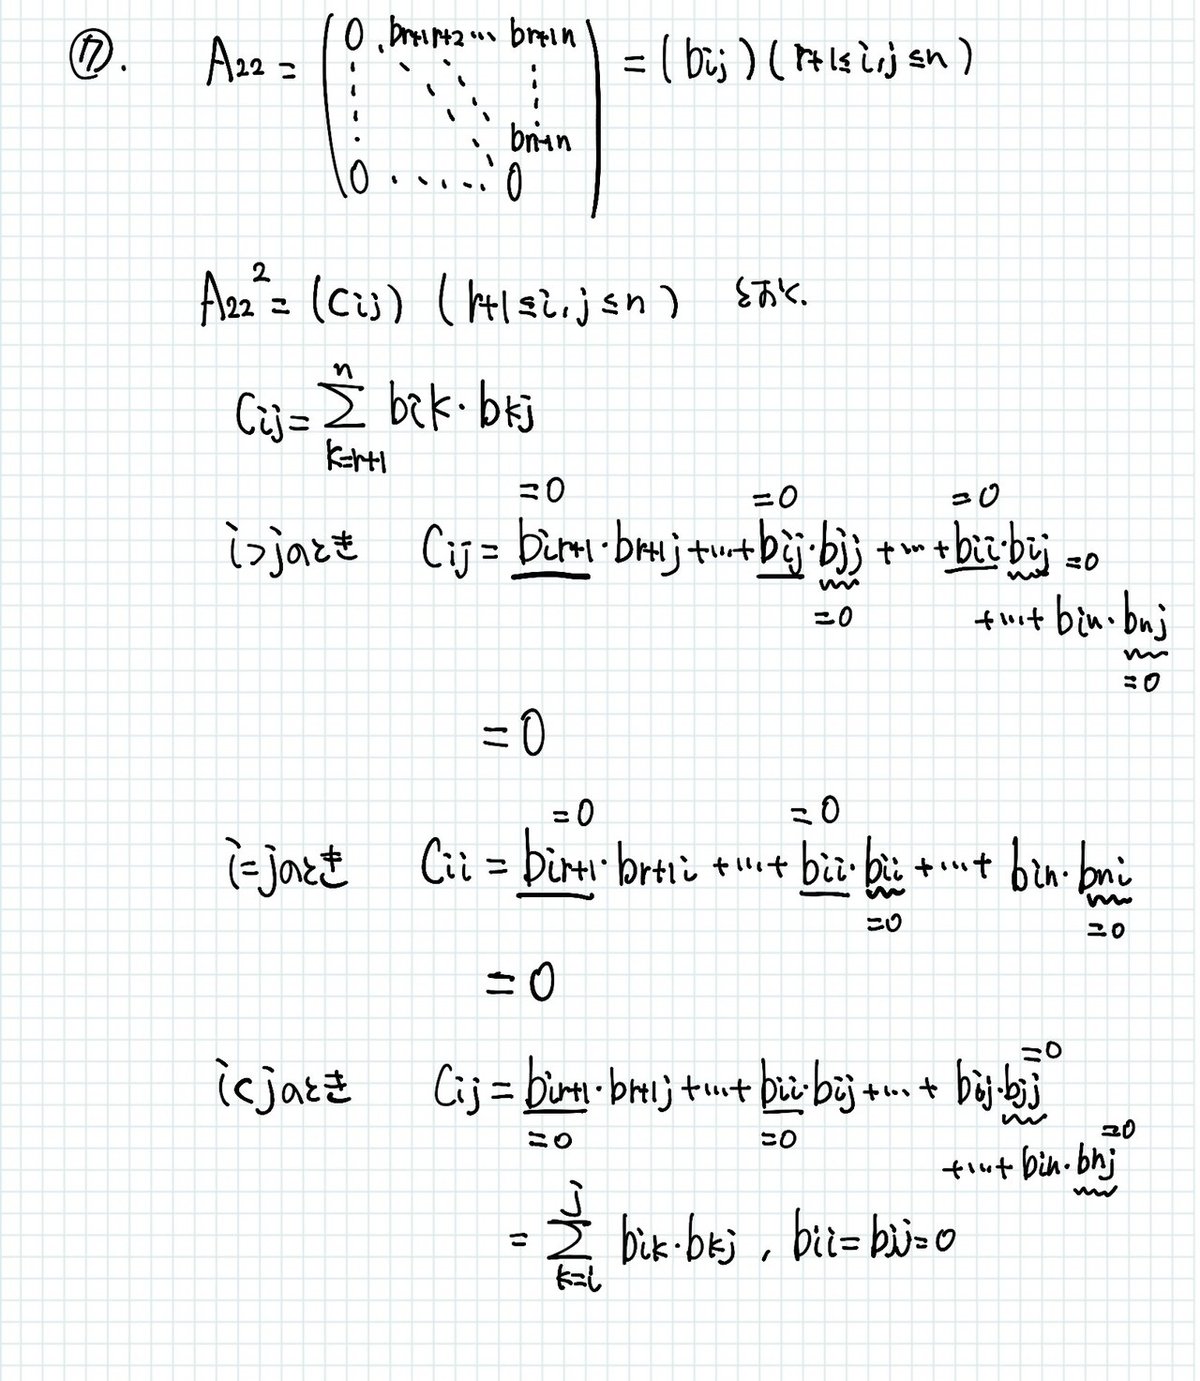 ⑰. A₂₂ = ( 0 , b r+1 r+2 … b r+1 n
b n-1 n
0 ‥‥‥ 0 ) = (bij) (r+1≦i,j≦n)
A₂₂² = (Cij) (r+1≦i,j≦n) とおく.
Cij = Σ[k=r+1→n] bik・bkj
=0 =0 =0
i>jのとき Cij = bir+1・br+1j+…+bij・bjj+…+bii・bij =0
=0 +…+ bin・bnj
=0
=0
=0 =0
i=jのとき Cii = bir+1・br+1i +…+ bii・bii +…+ bin・bni
=0 =0
=0
=0
i<jのとき Cij = bir+1・br+1j +…+ bii・bij +…+ bij・bjj
=0 =0 =0
+…+ bin・bnj
= Σ[k=i→j] bik・bkj , bii=bjj=0